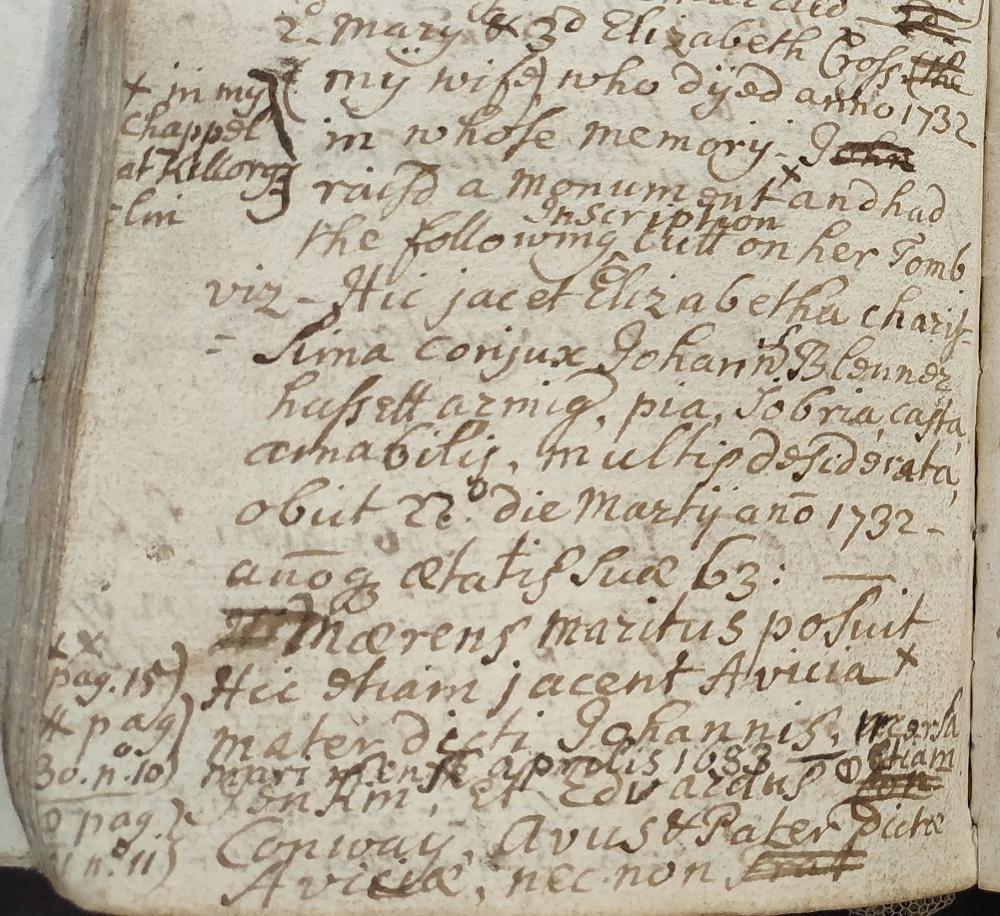 2d. Mary & 3d Elizabeth Cross (the
my wife) who dyed anno 1732
in whose memory - I John
rais'd a monument x and had
Inscription
the following cutt on her Tomb
viz - Hic jacet Elizabetha charis-
= sima conjux Johannis Blenner
hassett armig, pia, sobria, casta,
amabilis, multis desiderata,
obiit 22o. die Martij año 1732 -
añoq ætatis suæ 63: —
Mærens maritus posuit
Hic etiam jacent Avicia x
mater dicti Johannis, mersa
mari mense aprilis 1683 — etiam
Jenkin, Et Edvardus
Conway, Avus & Pater Dictæ
Aviciæ, nec non
+ in my
chappel
at Killorg
= lin
x x
pag. 15)
# pag)
30. no. 10)
pag.)
no. 11)